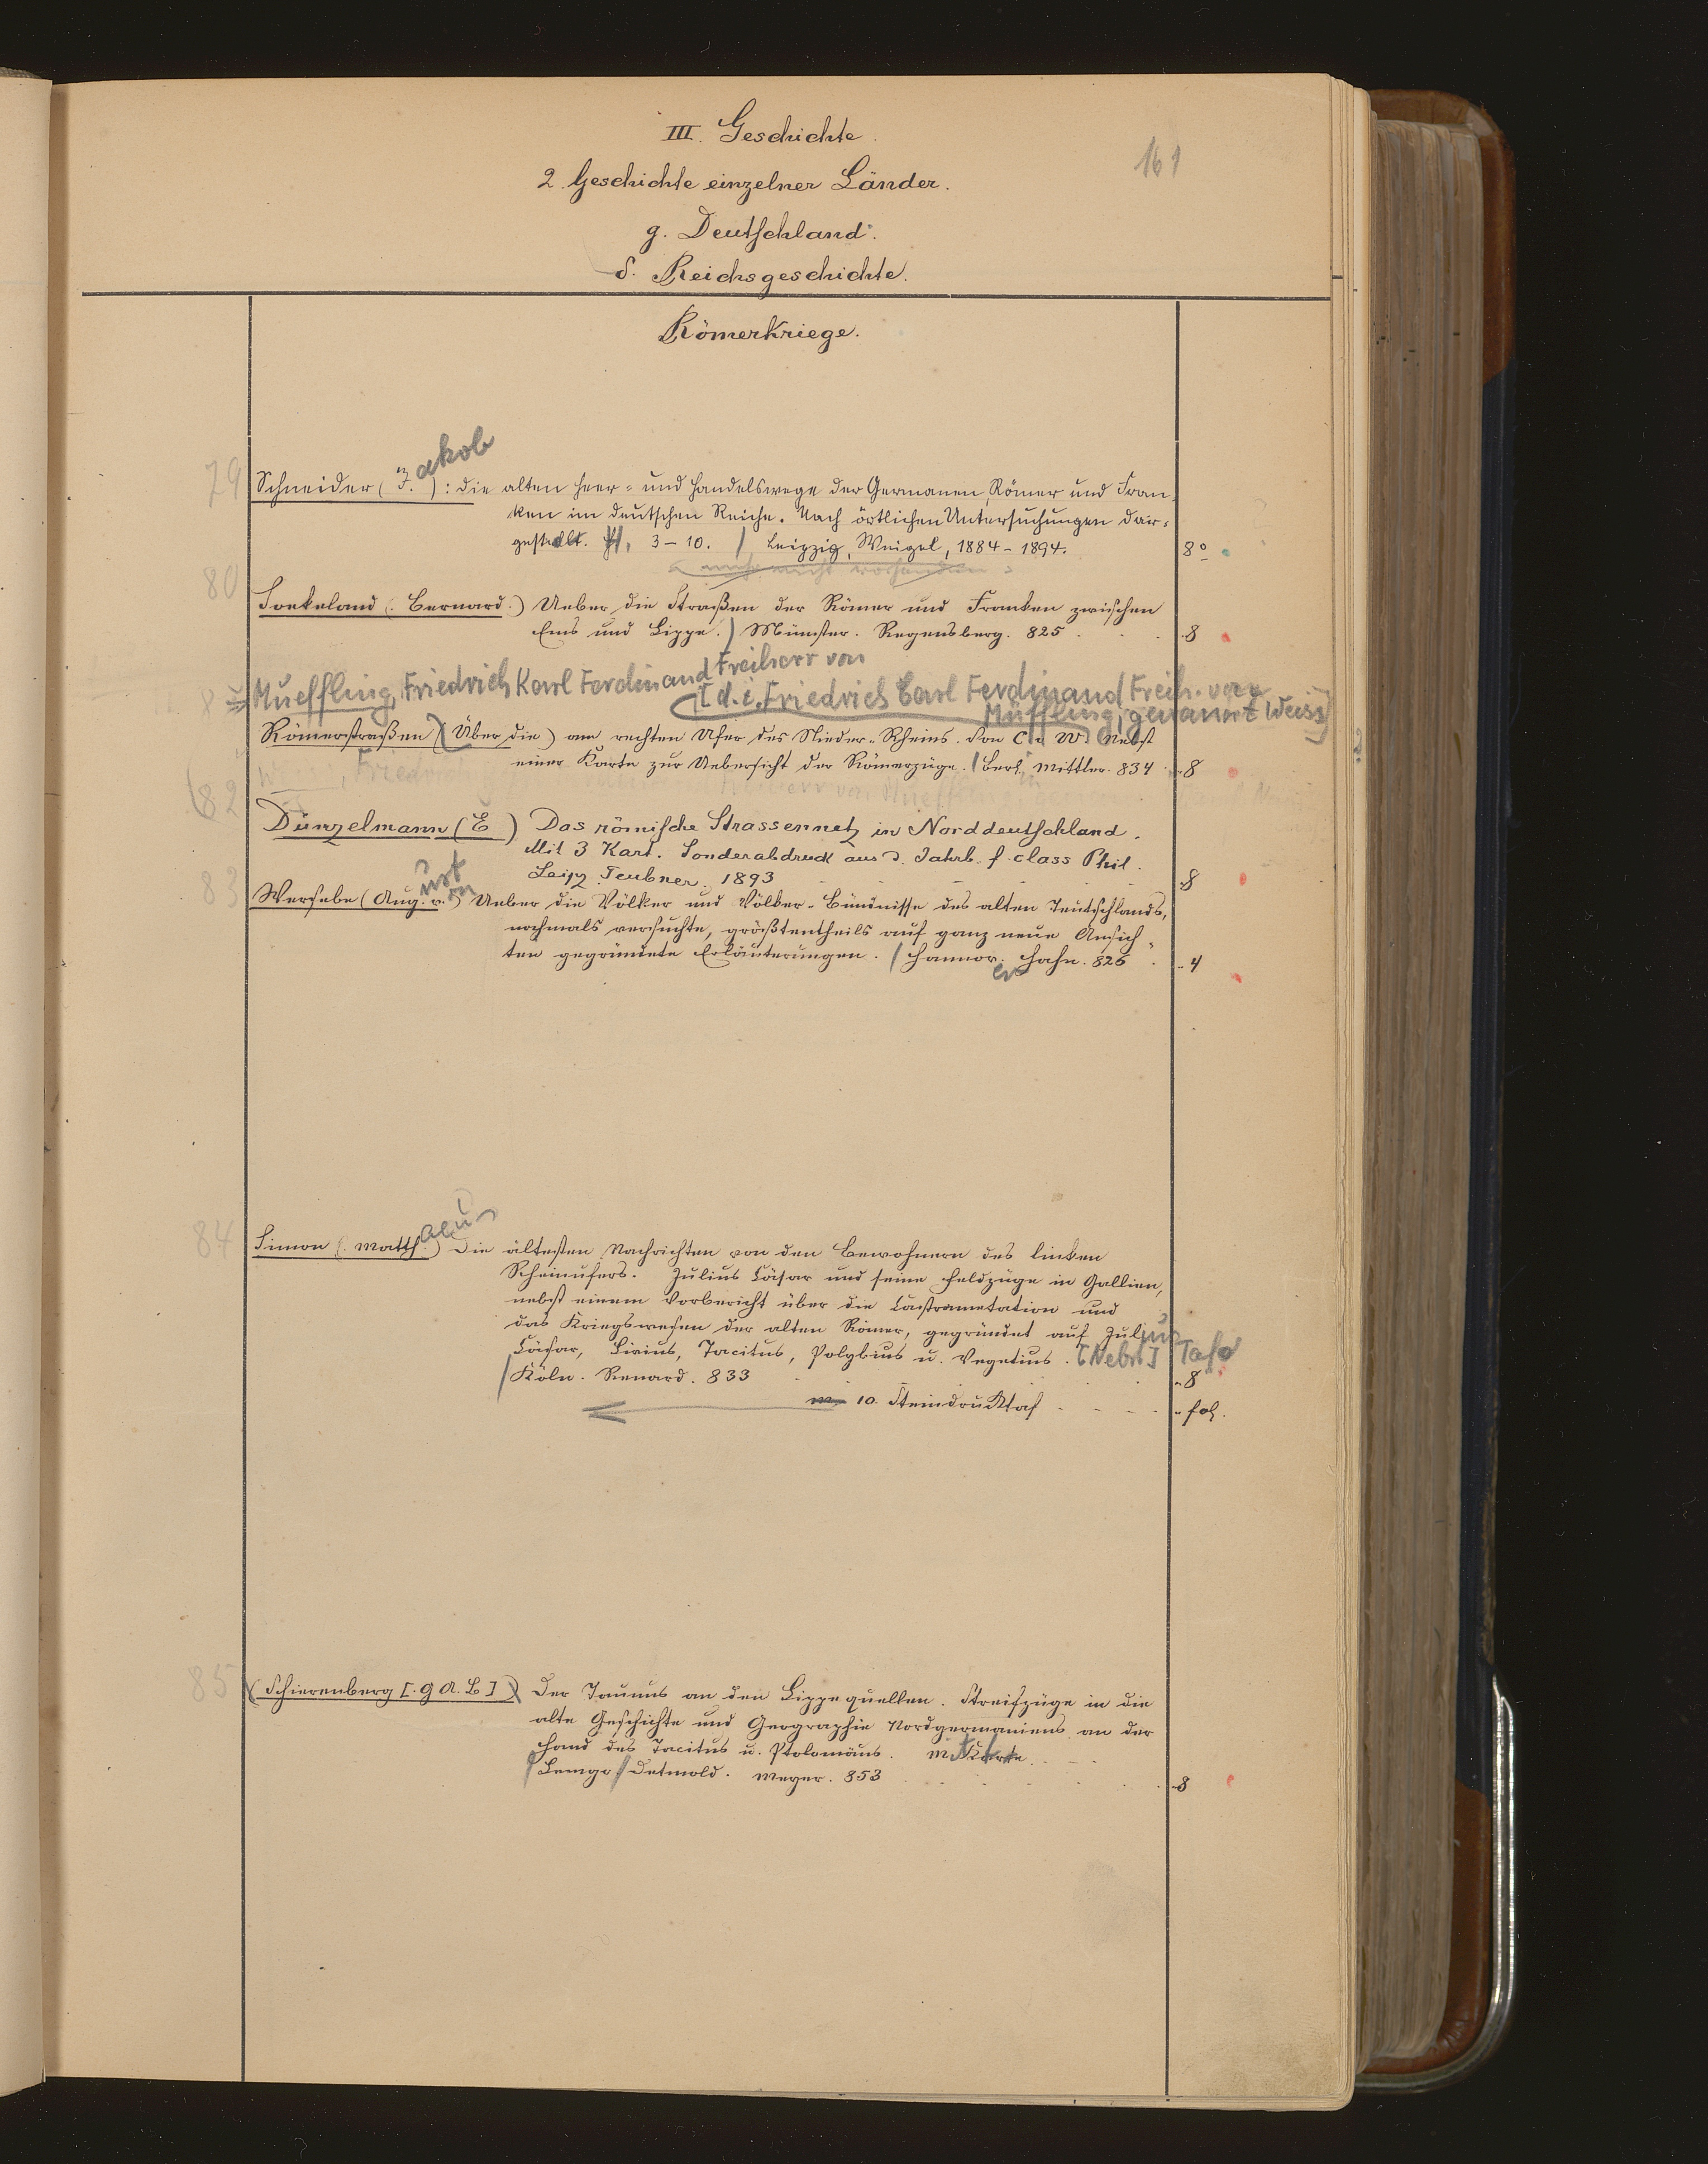 III. Geschichte.
161
2. Geschichte einzelner Länder.
g. Deutschland.
δ. Reichsgeschichte.
Römerkriege.
79
Schneider (J.akob): die alten Heer- und Handelswege der Germanen, Römer und Fran-
ken im deutschen Reiche. Nach örtlichen Untersuchungen dar-
gestellt. H. 3-10. / Leipzig, Weigel, 1884-1894. 8°
mehr nicht vorhanden
80
Soekeland (Bernard.) Ueber die Straßen der Römer und Franken zwischen
Ems und Lippe.) Münster. Regensberg. 825 . . . 8
Mueffling, Friedrich Karl Ferdinand Freiherr von
[d. i. Friedrich Carl Ferdinand Freih. von
Müffling, genannt Weiss]
Römerstraßen) (Über die) am rechten Ufer des Nieder-Rheins. Von C v W. Nebst
einer Karte zur Uebersicht der Römerzüge. / Berl. Mittler. 834 . 8
82
Dünzelmann (E) Das römische Strassennetz in Norddeutschland.
Mit 3 Kart. Sonderabdruck aus d. Jahrb. f. class Phil.
Leipz. Teubner. 1893 8
83
Wersebe (August von) Ueber die Völker und Völker-Bündnisse des alten Teutschlands,
nochmals versuchte, größtentheils auf ganz neue Ansich-
ten gegründete Erläuterungen. / Hannover Hahn. 826 . 4
84
Simon (Matthaeus) Die ältesten Nachrichten von den Bewohnern des linken
Rheinufers. Julius Cäsar und seine Feldzüge in Gallien,
nebst einem Vorbericht über die Castrametation und
das Kriegswesen der alten Römer, gegründet auf Julius
Cäsar, Livius, Tacitus, Polybius u. Vegetius. [Nebst] Tafd
/ Köln. Renard. 833 . . . 8
10. Steindrucktaf . . . fol.
85
(Schierenberg [. G A. B]) Der Taunus an den Lippequellen. Streifzüge in die
alte Geschichte und Geographie Nordgermaniens an der
Hand des Tacitus u. Ptolomäus. Mit Karte.
Lemgo / Detmold. Meyer. 853 . . . 8